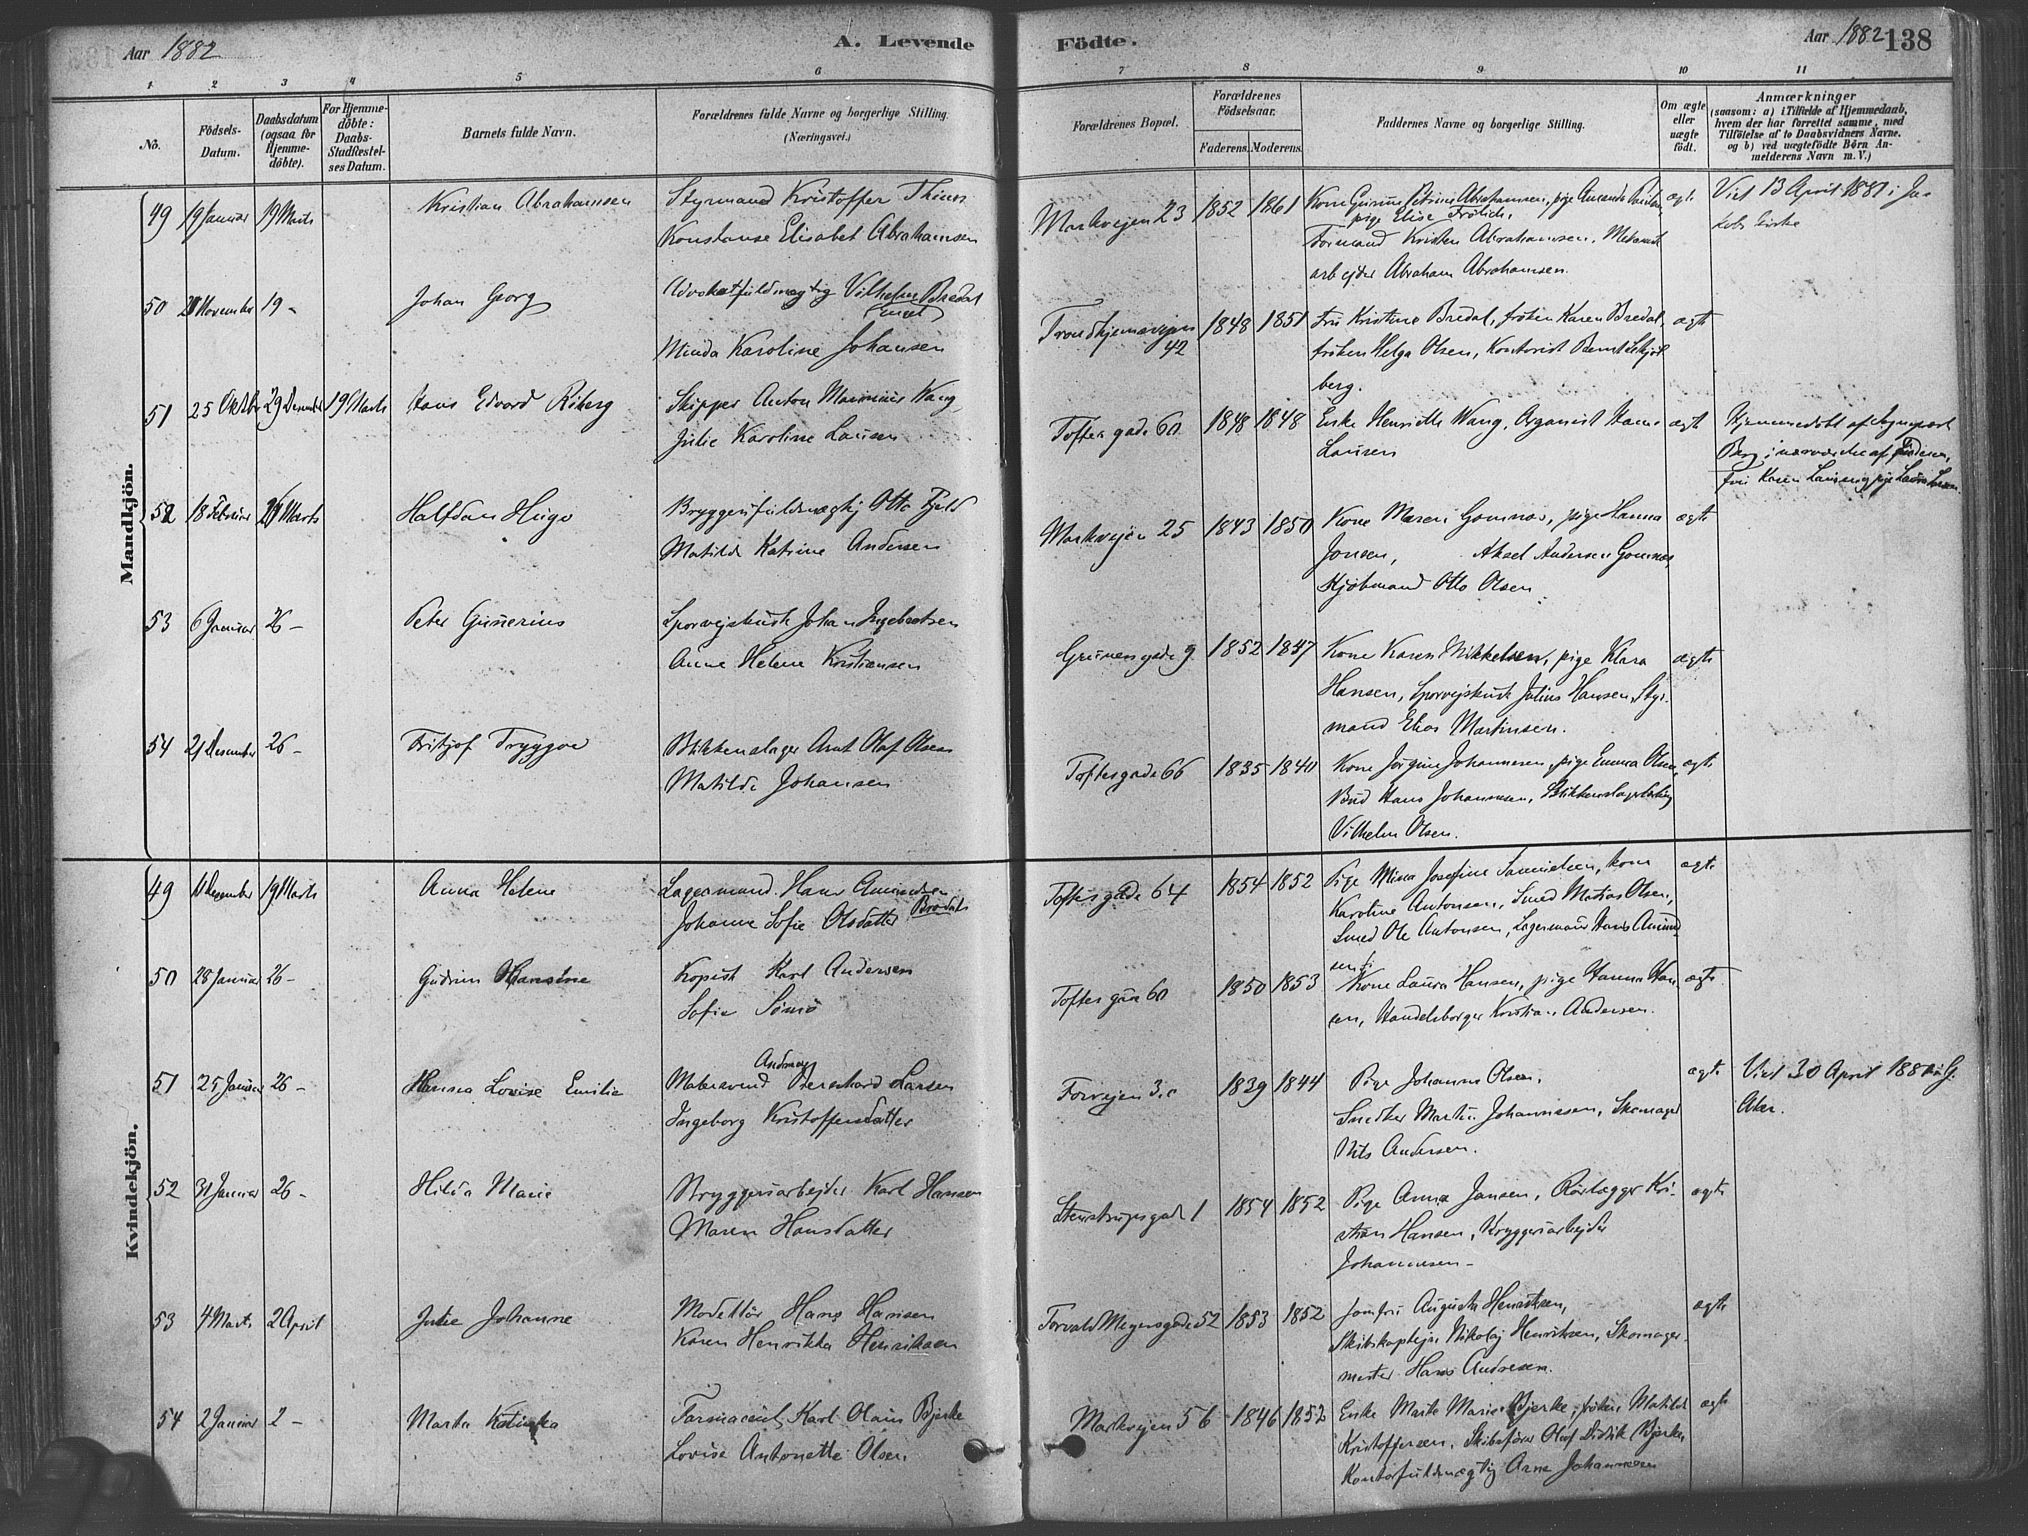 Aar 1882 A. Levende Födte. Aar 1882 138
1 2 3 4 5 6 7 8 9 10 11
No.
Födsels-Datum.
Daabsdatum (ogsaa for Hjemme-döbte).
For Hjemme-döbte: Daabs-Stadfæstel-ses Datum.
Barnets fulde Navn.
Forældrenes fulde Navne og borgerlige Stilling. (Næringsvei.)
Forældrenes Bopæl.
Forældrenes Födselsaar. Faderens. Moderens.
Faddernes Navne og borgerlige Stilling.
Om ægte eller uægte födt.
Anmærkninger
(saasom: a) i Tilfælde af Hjemmedaab, hvem der har forrettet samme, med Tilföielse af to Daabsvidners Navne. og b) ved uægtefödte Börn An-melderens Navn m. V.)
Mandkjön.
49 19 Januar 19 Marts Kristian Abrahamsen Styrmand Kristoffer
Konstanse Elisabet Abrahamsen
Markvejen 23 1852 1861
pige Elise Frölich,
Formand Kristen Abrahamsen,
arbejder Abraham Abrahamsen.
ægte
Viet 13 April 1881 i Ja
kobs kirke
50 November 19 - Johan Georg Advokatfuldmægtig Vilhelm Bredal
Minda Karoline Johansen
Trondhjemsvejen 42 1848 1851 Fru Kristine Bredal, fröken Karen Bredal,
fröken Helga Olsen, Kontorist Bernt
berg.
ægte
51 25 Oktbr 29 Desember 19 Marts Hans Edvard Riberg Skipper Anton Marinius Wang,
Julie Karoline Lausen
Toftesgade 60 1848 1848 Enke Henriette Wang, Organist Hans
Lausen
ægte
Hjemmedöbt af
Berg i nærværelse af
fru Karen
52 18 Februar 26 Marts Halfdan Hugo Bryggerifuldmægtig Otto
Matilde Katrine Andersen
Markvejen 25 1843 1850 Kone Maren Gomnæs, pige Hanna
Jonsen, Aksel Andersen Gomnæs,
Kjöbmand Otto Olsen.
ægte
53 6 Januar 26 - Peter Gunerius Sporvejskusk Johan Ingebretsen
Anne Helene Kristiansen
Grünersgade 9 1852 1847 Kone Karen Mikkelsen, pige Klara
Hansen, Sporvejskusk Julius Hansen, Styr
mand Elias Martinsen.
ægte
54 21 Desember 26 - Fritjof Tryggve Blikkenslager Arnt Olaf Olsen
Matilde Johansen
Toftesgade 66 1835 1840 Kone Jörgine Johannesen, pige Emma Olsen,
Bud Hans Johannesen,
Vilhelm Olsen.
ægte
Kvindekjön.
49 Desember 19 Marts Anna Helene Lagermand Hans Amundsen
Johanne Sofie Olsdatter
Toftesgade 64 1854 1852 Pige Mina Josefine Samuelsen, kone
Karoline Antonsen, Smed Matias Olsen,
Smed Ole Antonsen, Lagermand Hans Amund
sen.
ægte
50 28 Januar 26 - Gudrun Hansine Kopist Karl Andersen
Sofie
Toftesgade 60 1850 1853 Kone Laura Hansen, pige Hanna Han
sen, Handelsborger Kristian Andersen.
ægte
51 25 Januar 26 - Hanna Lovise Emilie Malersvend Bernhard Larsen
Ingeborg Kristoffersdatter
Forvejen 3 c 1839 1844 Pige Johanne Olsen,
Snedker Martin Johannesen, Skomager
Nils Andersen.
ægte
Viet 30 April 188
Aker.
52 31 Januar 26 - Hilda Marie Bryggeriarbejder Karl Hansen
Maren Hansdatter
Stenstrupsgade 1 1854 1852 Pige Anna Jansen, Rörlægger Kri-
stian Hansen, Bryggeriarbejder
Johannesen -
ægte
53 4 Marts 2 April Julie Johanne Modellör Hans Hansen
Karen Henrikka Henriksen
Torvald Meyersgade 52 1853 1852 Jomfru Augusta Henriksen,
Skibskaptejn Nikolaj Henriksen, Skomager
mester Hans Andresen.
ægte
54 2 Januar 2 - Marta Katinka Farmaceut Karl Olaus Bjerke
Lovise Antonette Olsen
Markvejen 56 1846 1852 Enke Marte Marie Bjerke, fröken Matilde
Kristoffersen, Skibsförer Olaf Didrik Bjerke,
Kontorfuldmægtig Arne Johannesen
ægte